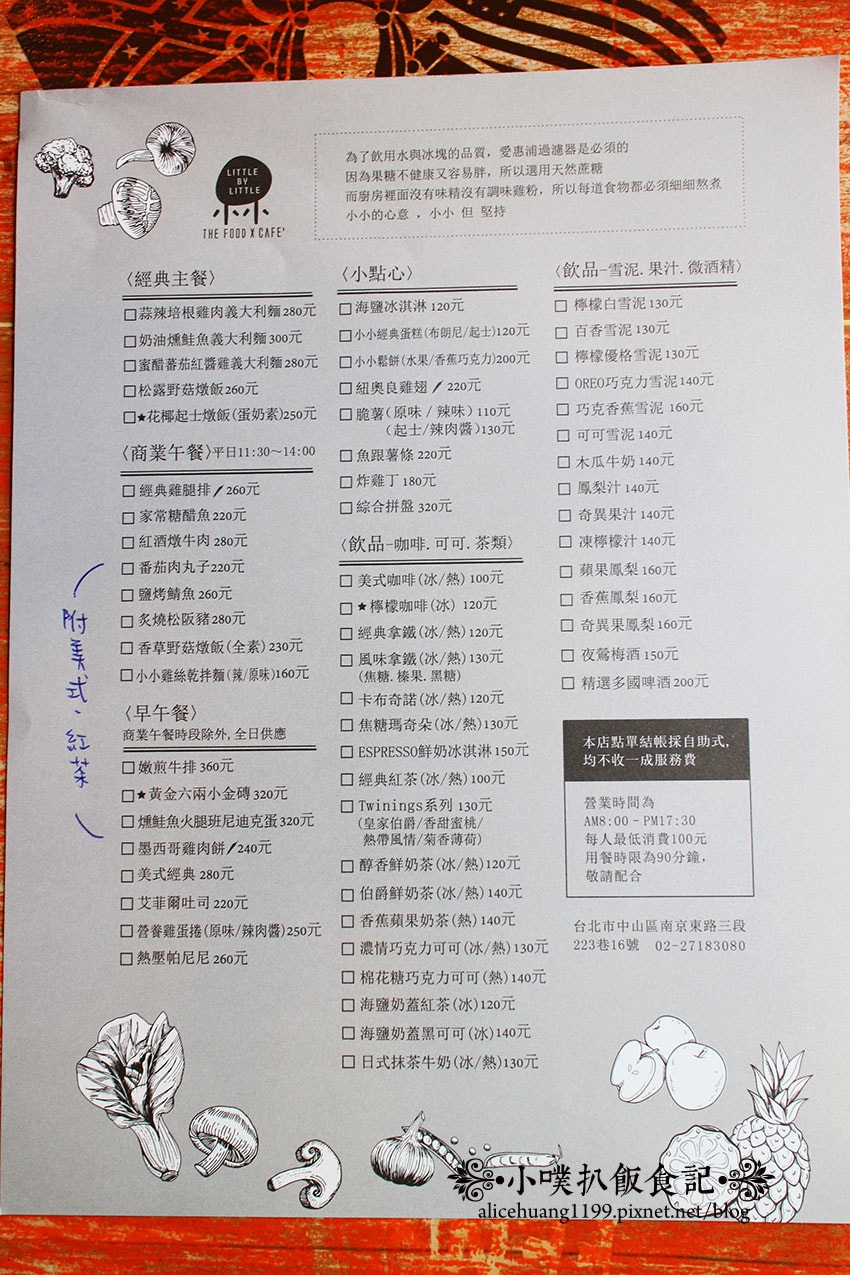 LITTLE
BY
LITTLE
小小
THE FOOD X CAFE'
為了飲用水與冰塊的品質，愛惠浦過濾器是必須的
因為果糖不健康又容易胖，所以選用天然蔗糖
而廚房裡面沒有味精沒有調味雞粉，所以每道食物都必須細細熬煮
小小的心意 ，小小 但 堅持
〈經典主餐〉
□蒜辣培根雞肉義大利麵280元
□奶油燻鮭魚義大利麵300元
□蜜醋蕃茄紅醬雞義大利麵280元
□松露野菇燉飯260元
□★花椰起士燉飯(蛋奶素)250元
〈商業午餐〉平日11:30～14:00
□ 經典雞腿排 260元
□ 家常糖醋魚220元
□ 紅酒燉牛肉 280元
□ 番茄肉丸子220元
□ 鹽烤鯖魚260元
□ 炙燒松阪豬280元
□ 香草野菇燉飯(全素)230元
□小小雞絲乾拌麵(辣/原味)160元
附美式、紅茶
〈早午餐〉
商業午餐時段除外,全日供應
□ 嫩煎牛排360元
□★黃金六兩小金磚320元
□燻鮭魚火腿班尼迪克蛋320元
□ 墨西哥雞肉餅 240元
□ 美式經典 280元
□ 艾菲爾吐司 220元
□ 營養雞蛋捲(原味/辣肉醬)250元
□ 熱壓帕尼尼 260元
〈小點心〉
□海鹽冰淇淋 120元
□小小經典蛋糕(布朗尼/起士)120元
□小小鬆餅(水果/香蕉巧克力)200元
□ 紐奧良雞翅 220元
□ 脆薯(原味 / 辣味) 110元
(起士/辣肉醬)130元
□ 魚跟薯條 220元
□ 炸雞丁 180元
□綜合拼盤 320元
〈飲品-咖啡.可可.茶類〉
□ 美式咖啡(冰/熱) 100元
□ ★檸檬咖啡(冰) 120元
□ 經典拿鐵(冰/熱)120元
□ 風味拿鐵(冰/熱)130元
(焦糖.榛果.黑糖)
□ 卡布奇諾(冰/熱)120元
□ 焦糖瑪奇朵(冰/熱)130元
□ ESPRESSO鮮奶冰淇淋150元
□ 經典紅茶(冰/熱)100元
□ Twinings系列 130元
(皇家伯爵/香甜蜜桃/
熱帶風情/菊香薄荷)
□ 醇香鮮奶茶(冰/熱)120元
□ 伯爵鮮奶茶(冰/熱)140元
□ 香蕉蘋果奶茶(熱)140元
□ 濃情巧克力可可(冰/熱)130元
□ 棉花糖巧克力可可(熱)140元
□ 海鹽奶蓋紅茶(冰)120元
□ 海鹽奶蓋黑可可(冰)140元
□ 日式抹茶牛奶(冰/熱)130元
〈飲品-雪泥.果汁.微酒精〉
□ 檸檬白雪泥130元
□ 百香雪泥 130元
□ 檸檬優格雪泥130元
□ OREO巧克力雪泥140元
□ 巧克香蕉雪泥 160元
□ 可可雪泥 140元
□ 木瓜牛奶 140元
□ 鳳梨汁 140元
□ 奇異果汁 140元
□ 凍檸檬汁 140元
□ 蘋果鳳梨 160元
□ 香蕉鳳梨 160元
□ 奇異果鳳梨160元
□ 夜鶯梅酒 150元
□ 精選多國啤酒200元
本店點單結帳採自助式,
均不收一成服務費
營業時間為
AM8:00－PM17:30
每人最低消費100元
用餐時限為90分鐘,
敬請配合
台北市中山區南京東路三段
223巷16號 02-27183080
小噗扒飯食記
alicehuang1199.pixnet.net/blog